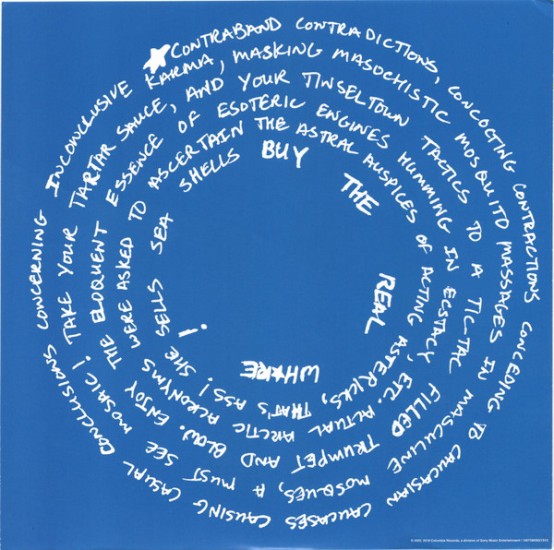 CONTRABAND CONTRADICTIONS, CONCOCTING CONTRACTIONS CONCEDING TO CAUCASIAN CAUCASES CAUSING CASUAL CONCLUSIONS CONCERNING INCONCLUSIVE
KARMA, MASKING MASOCHISTIC MOSQUITO MASSAGES IN MASCULINE MOSQUES, A MUST SEE MOSAIC! TAKE YOUR
TARTAR SAUCE, AND YOUR TINSELTOWN TACTICS TO A TIC TAC FILLED TRUMPET AND BLOW. ENJOY THE ELOQUENT
ESSENCE OF ESOTERIC ENGINES HUMMING IN ECSTACY, ETC. ACTUAL ARCTIC ACRONYMS WERE ASKED TO
ASCERTAIN THE ASTRAL AUSPICES OF ACTING ASTERICKS, THAT'S ASS! SHE SELLS SEA SHELLS
BUY THE REAL WHARE !
Columbia Records, a Division of Sony Music Entertainment